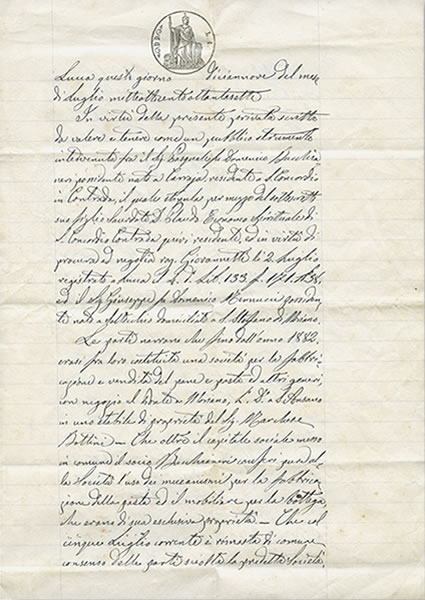 Lucca questo giorno diciannove del mese
di Luglio milleottocentoottantasette
In virtù della presente privata scritta
da valere e tenere come un pubblico istrumento
intervenuta fra il Sig. Pasquale fu Domenico
possidente nato a Carraja residente a S. Concordio
in Contrada, il quale stipula per mezzo del
suo figlio Claudio Economo Spirituale di
S. Concordio Contrada quivi residente, ed in virtù di
procura ai rogiti Giovannetti li 2 Luglio
registrato a Lucca il Lib. 133 f. 171
ed il Sig. Giuseppe fu Domenico possiden-
te nato a domiciliato a S. Stefano di Moriano,
Le parti narrano che fino dall'anno 1882,
erasi fra loro costituita una società per la fabbri-
cazione e vendita del pane e paste ed altri generi,
con negozio al Moriano, a S. Ansano
in uno stabile di proprietà del Sig. Marchese
Bottini — Che oltre il capitale sociale messo
in comune il socio conferì pure al-
la Società l'uso dei meccanismi per la fabbrica-
zione delle paste ed il mobiliare per la bottega,
che erano di sua esclusiva proprietà — Che col
cinque Luglio corrente è rimasta di comune
consenso delle parti sciolta la predetta Società,